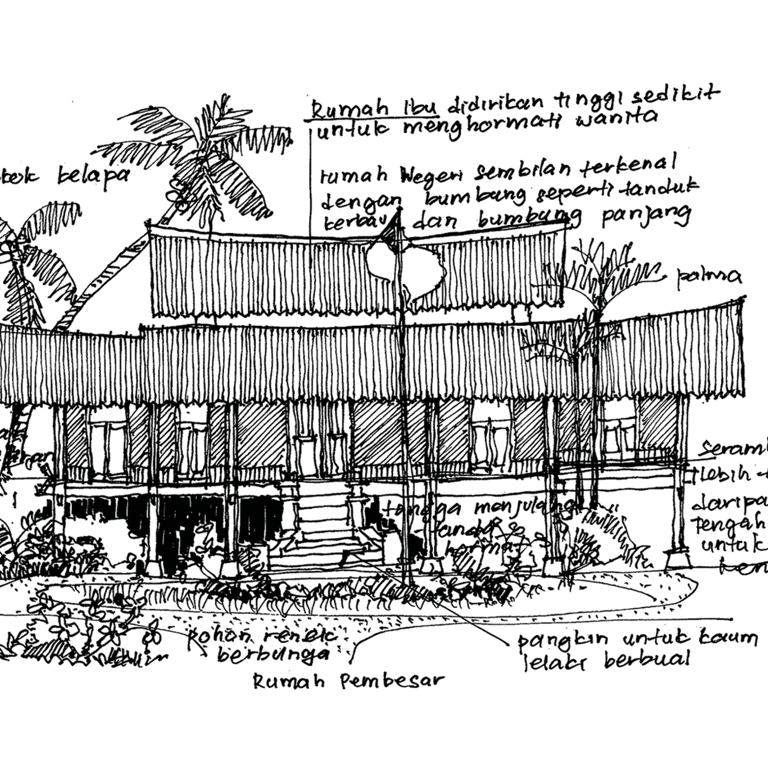 Rumah Ibu didirikan tinggi sedikit
untuk menghormati wanita
rumah Negeri Sembilan terkenal
dengan bumbung seperti tanduk
kerbau dan bumbung panjang
kelapa
palma
tlebih
daripa
Tengah
untuk
tangga menjulang
tanda
hormat
pohon renek
berbunga
pangkin untuk kaum
lelaki berbual
Rumah Pembesar